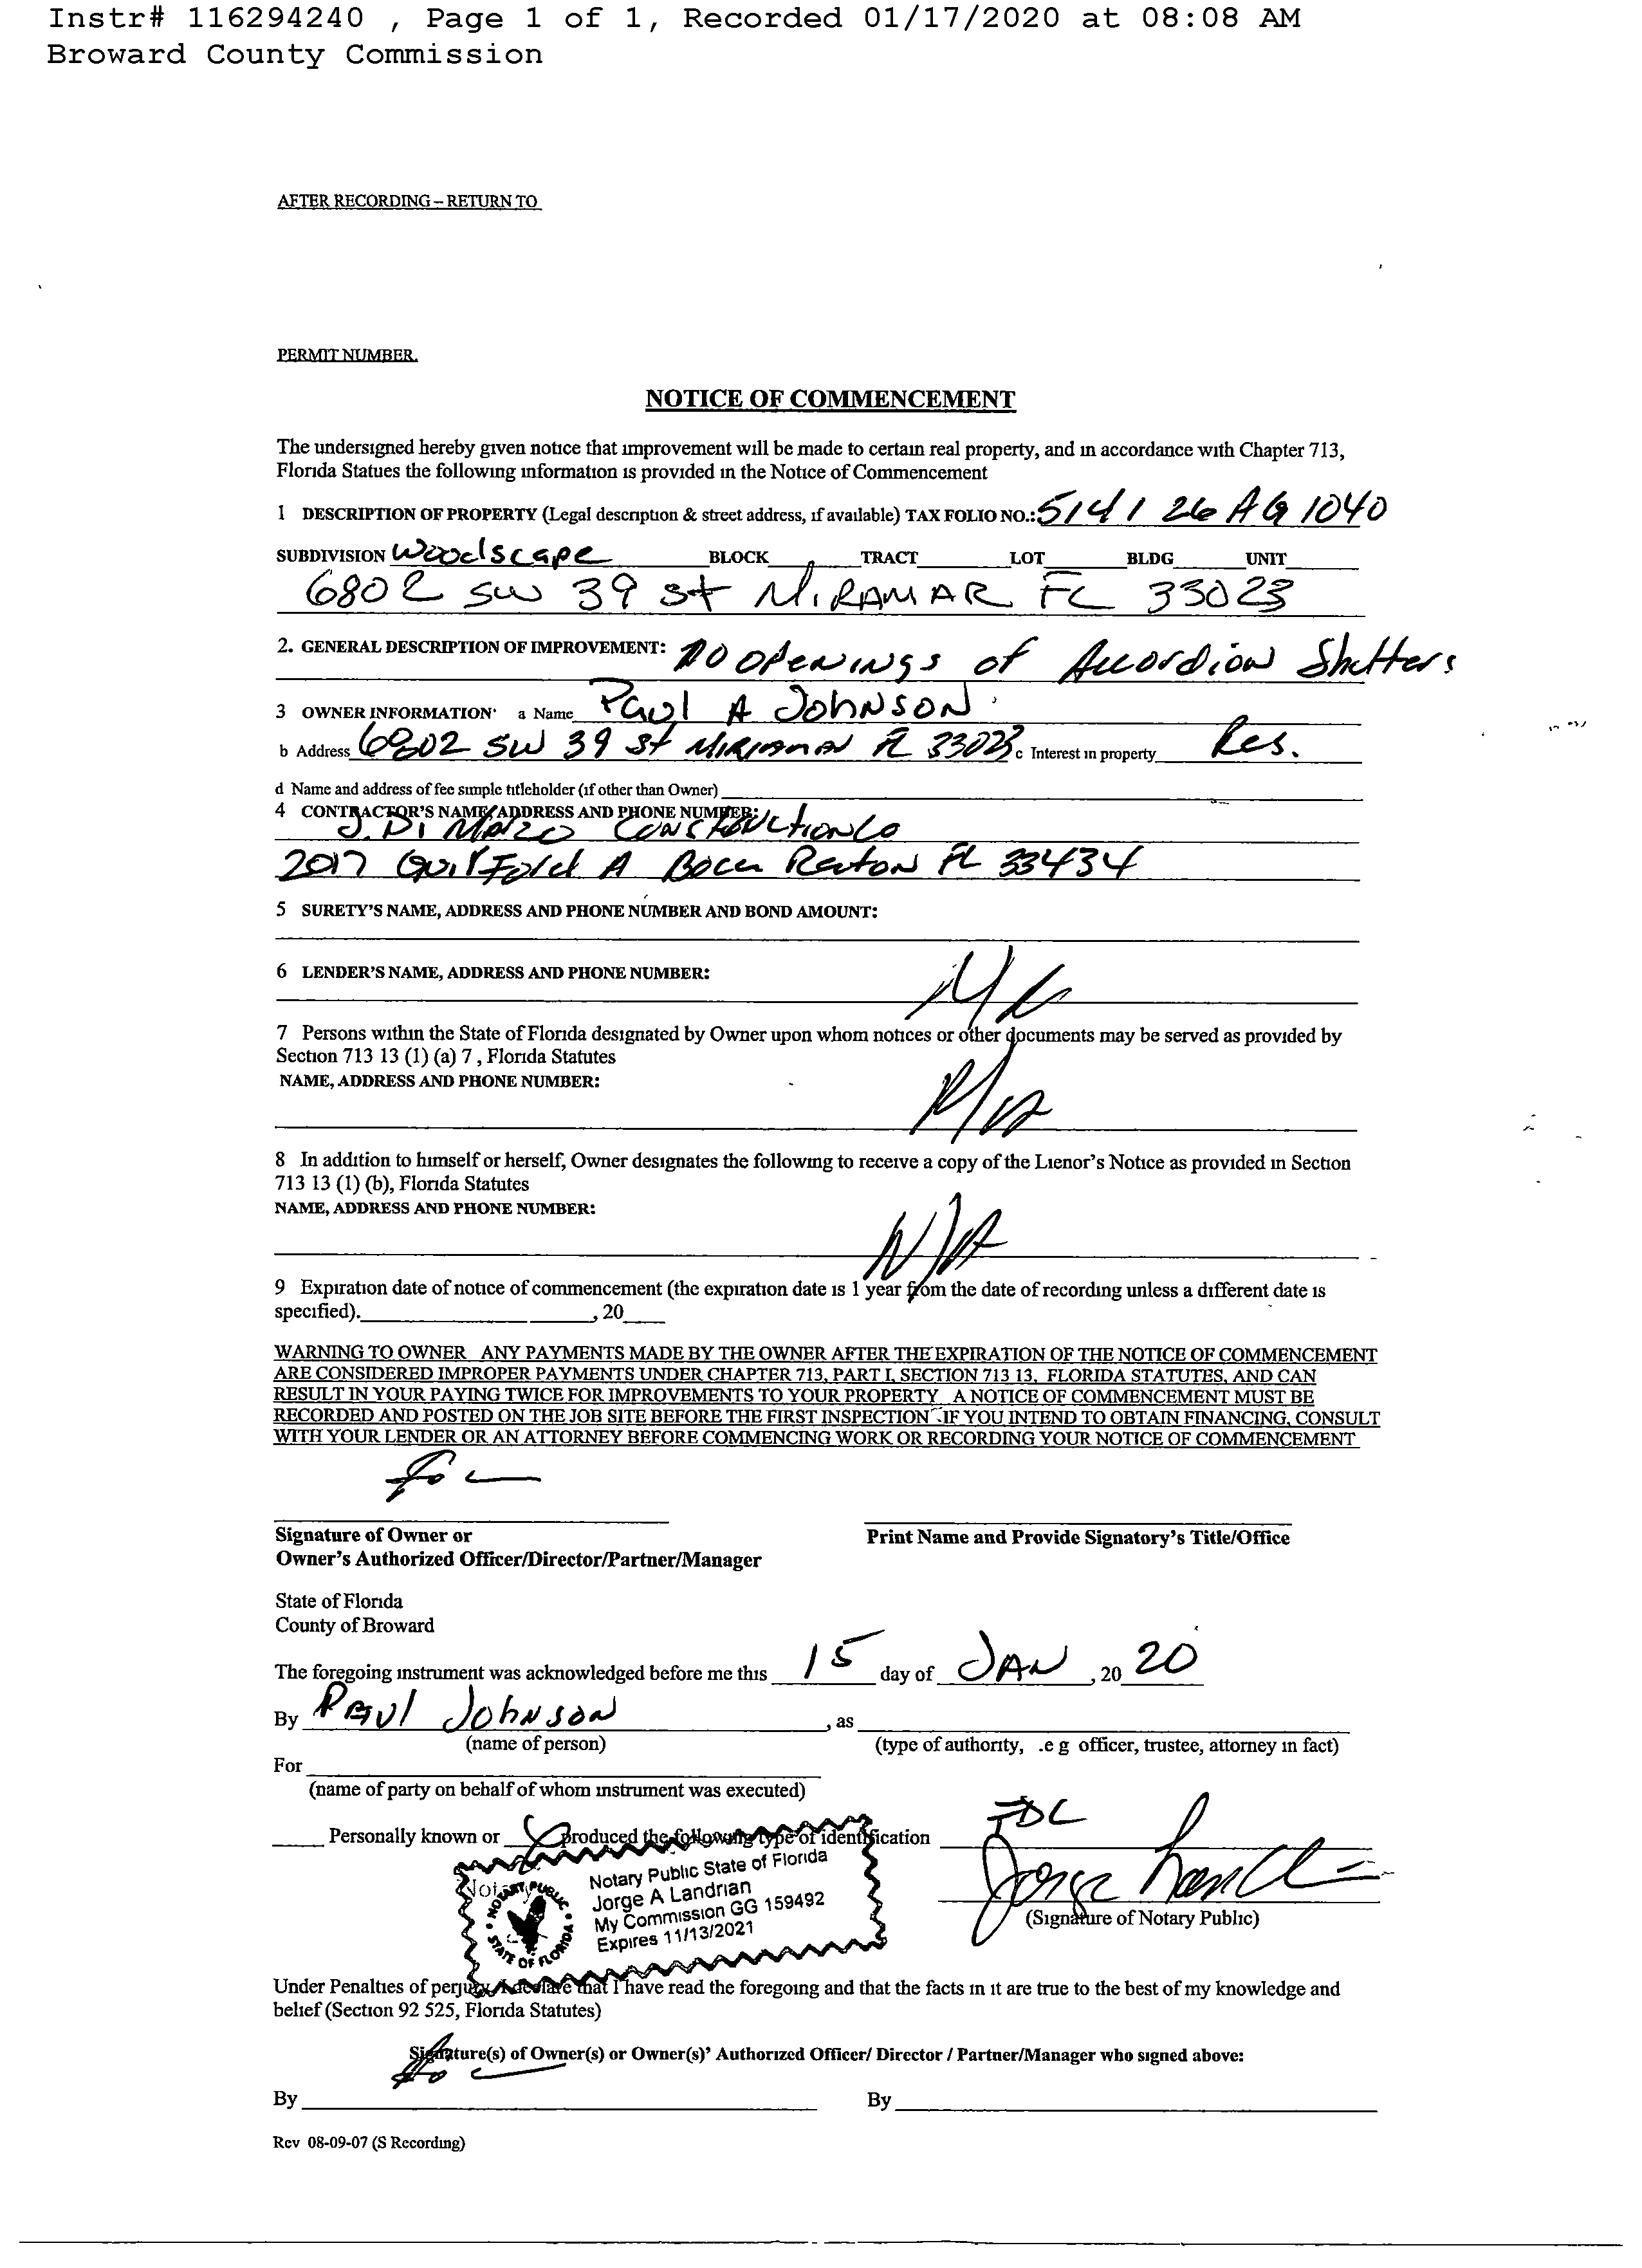 Instr# 116294240 , Page 1 of 1, Recorded 01/17/2020 at 08:08 AM
Broward County Commission
AFTER RECORDING – RETURN TO
PERMIT NUMBER.
NOTICE OF COMMENCEMENT
The undersigned hereby given notice that improvement will be made to certain real property, and in accordance with Chapter 713,
Florida Statues the following information is provided in the Notice of Commencement
1 DESCRIPTION OF PROPERTY (Legal description & street address, if available) TAX FOLIO NO.: 5141 26 AG 1040
SUBDIVISION Woodscape BLOCK TRACT LOT BLDG UNIT
6802 SW 39 St MIRAMAR FL 33023
2. GENERAL DESCRIPTION OF IMPROVEMENT: OPENINGS of Accordion Shutters
3 OWNER INFORMATION· a Name Paul A Johnson
b Address 6802 SW 39 St Miramar FL 33023 c Interest in property Res.
d Name and address of fee simple titleholder (if other than Owner)
4 CONTRACTOR'S NAME, ADDRESS AND PHONE NUMBER:
J. Di Marzo Construction Co
2017 Guilford A Boca Raton FL 33434
5 SURETY'S NAME, ADDRESS AND PHONE NUMBER AND BOND AMOUNT:
6 LENDER'S NAME, ADDRESS AND PHONE NUMBER:
N/A
7 Persons within the State of Florida designated by Owner upon whom notices or other documents may be served as provided by
Section 713 13 (1) (a) 7 , Florida Statutes
NAME, ADDRESS AND PHONE NUMBER:
N/A
8 In addition to himself or herself, Owner designates the following to receive a copy of the Lienor's Notice as provided in Section
713 13 (1) (b), Florida Statutes
NAME, ADDRESS AND PHONE NUMBER:
N/A
9 Expiration date of notice of commencement (the expiration date is 1 year from the date of recording unless a different date is
specified). , 20
WARNING TO OWNER ANY PAYMENTS MADE BY THE OWNER AFTER THE EXPIRATION OF THE NOTICE OF COMMENCEMENT
ARE CONSIDERED IMPROPER PAYMENTS UNDER CHAPTER 713, PART I, SECTION 713 13, FLORIDA STATUTES, AND CAN
RESULT IN YOUR PAYING TWICE FOR IMPROVEMENTS TO YOUR PROPERTY A NOTICE OF COMMENCEMENT MUST BE
RECORDED AND POSTED ON THE JOB SITE BEFORE THE FIRST INSPECTION IF YOU INTEND TO OBTAIN FINANCING, CONSULT
WITH YOUR LENDER OR AN ATTORNEY BEFORE COMMENCING WORK OR RECORDING YOUR NOTICE OF COMMENCEMENT
Signature of Owner or Print Name and Provide Signatory's Title/Office
Owner's Authorized Officer/Director/Partner/Manager
State of Florida
County of Broward
The foregoing instrument was acknowledged before me this 15 day of JAN , 20 20
By Paul Johnson , as
(name of person) (type of authority, .e g officer, trustee, attorney in fact)
For
(name of party on behalf of whom instrument was executed)
Personally known or produced the following type of identification FDL
Notary Public State of Florida
Jorge A Landrian
My Commission GG 159492
Expires 11/13/2021
NOTARY PUBLIC STATE OF FLORIDA
(Signature of Notary Public)
Under Penalties of perjury, I declare that I have read the foregoing and that the facts in it are true to the best of my knowledge and
belief (Section 92 525, Florida Statutes)
Signature(s) of Owner(s) or Owner(s)' Authorized Officer/ Director / Partner/Manager who signed above:
By By
Rev 08-09-07 (S Recording)